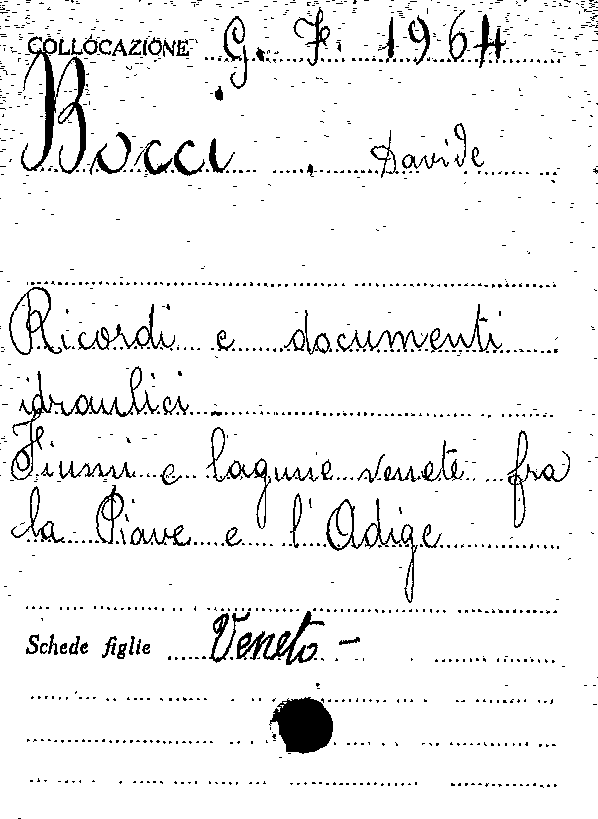 COLLOCAZIONE G. F. 1964
Bocci . Davide
Ricordi e documenti
idraulici.
Fiumi e lagune venete fra
la Piave e l'Adige
Schede figlie Veneto -